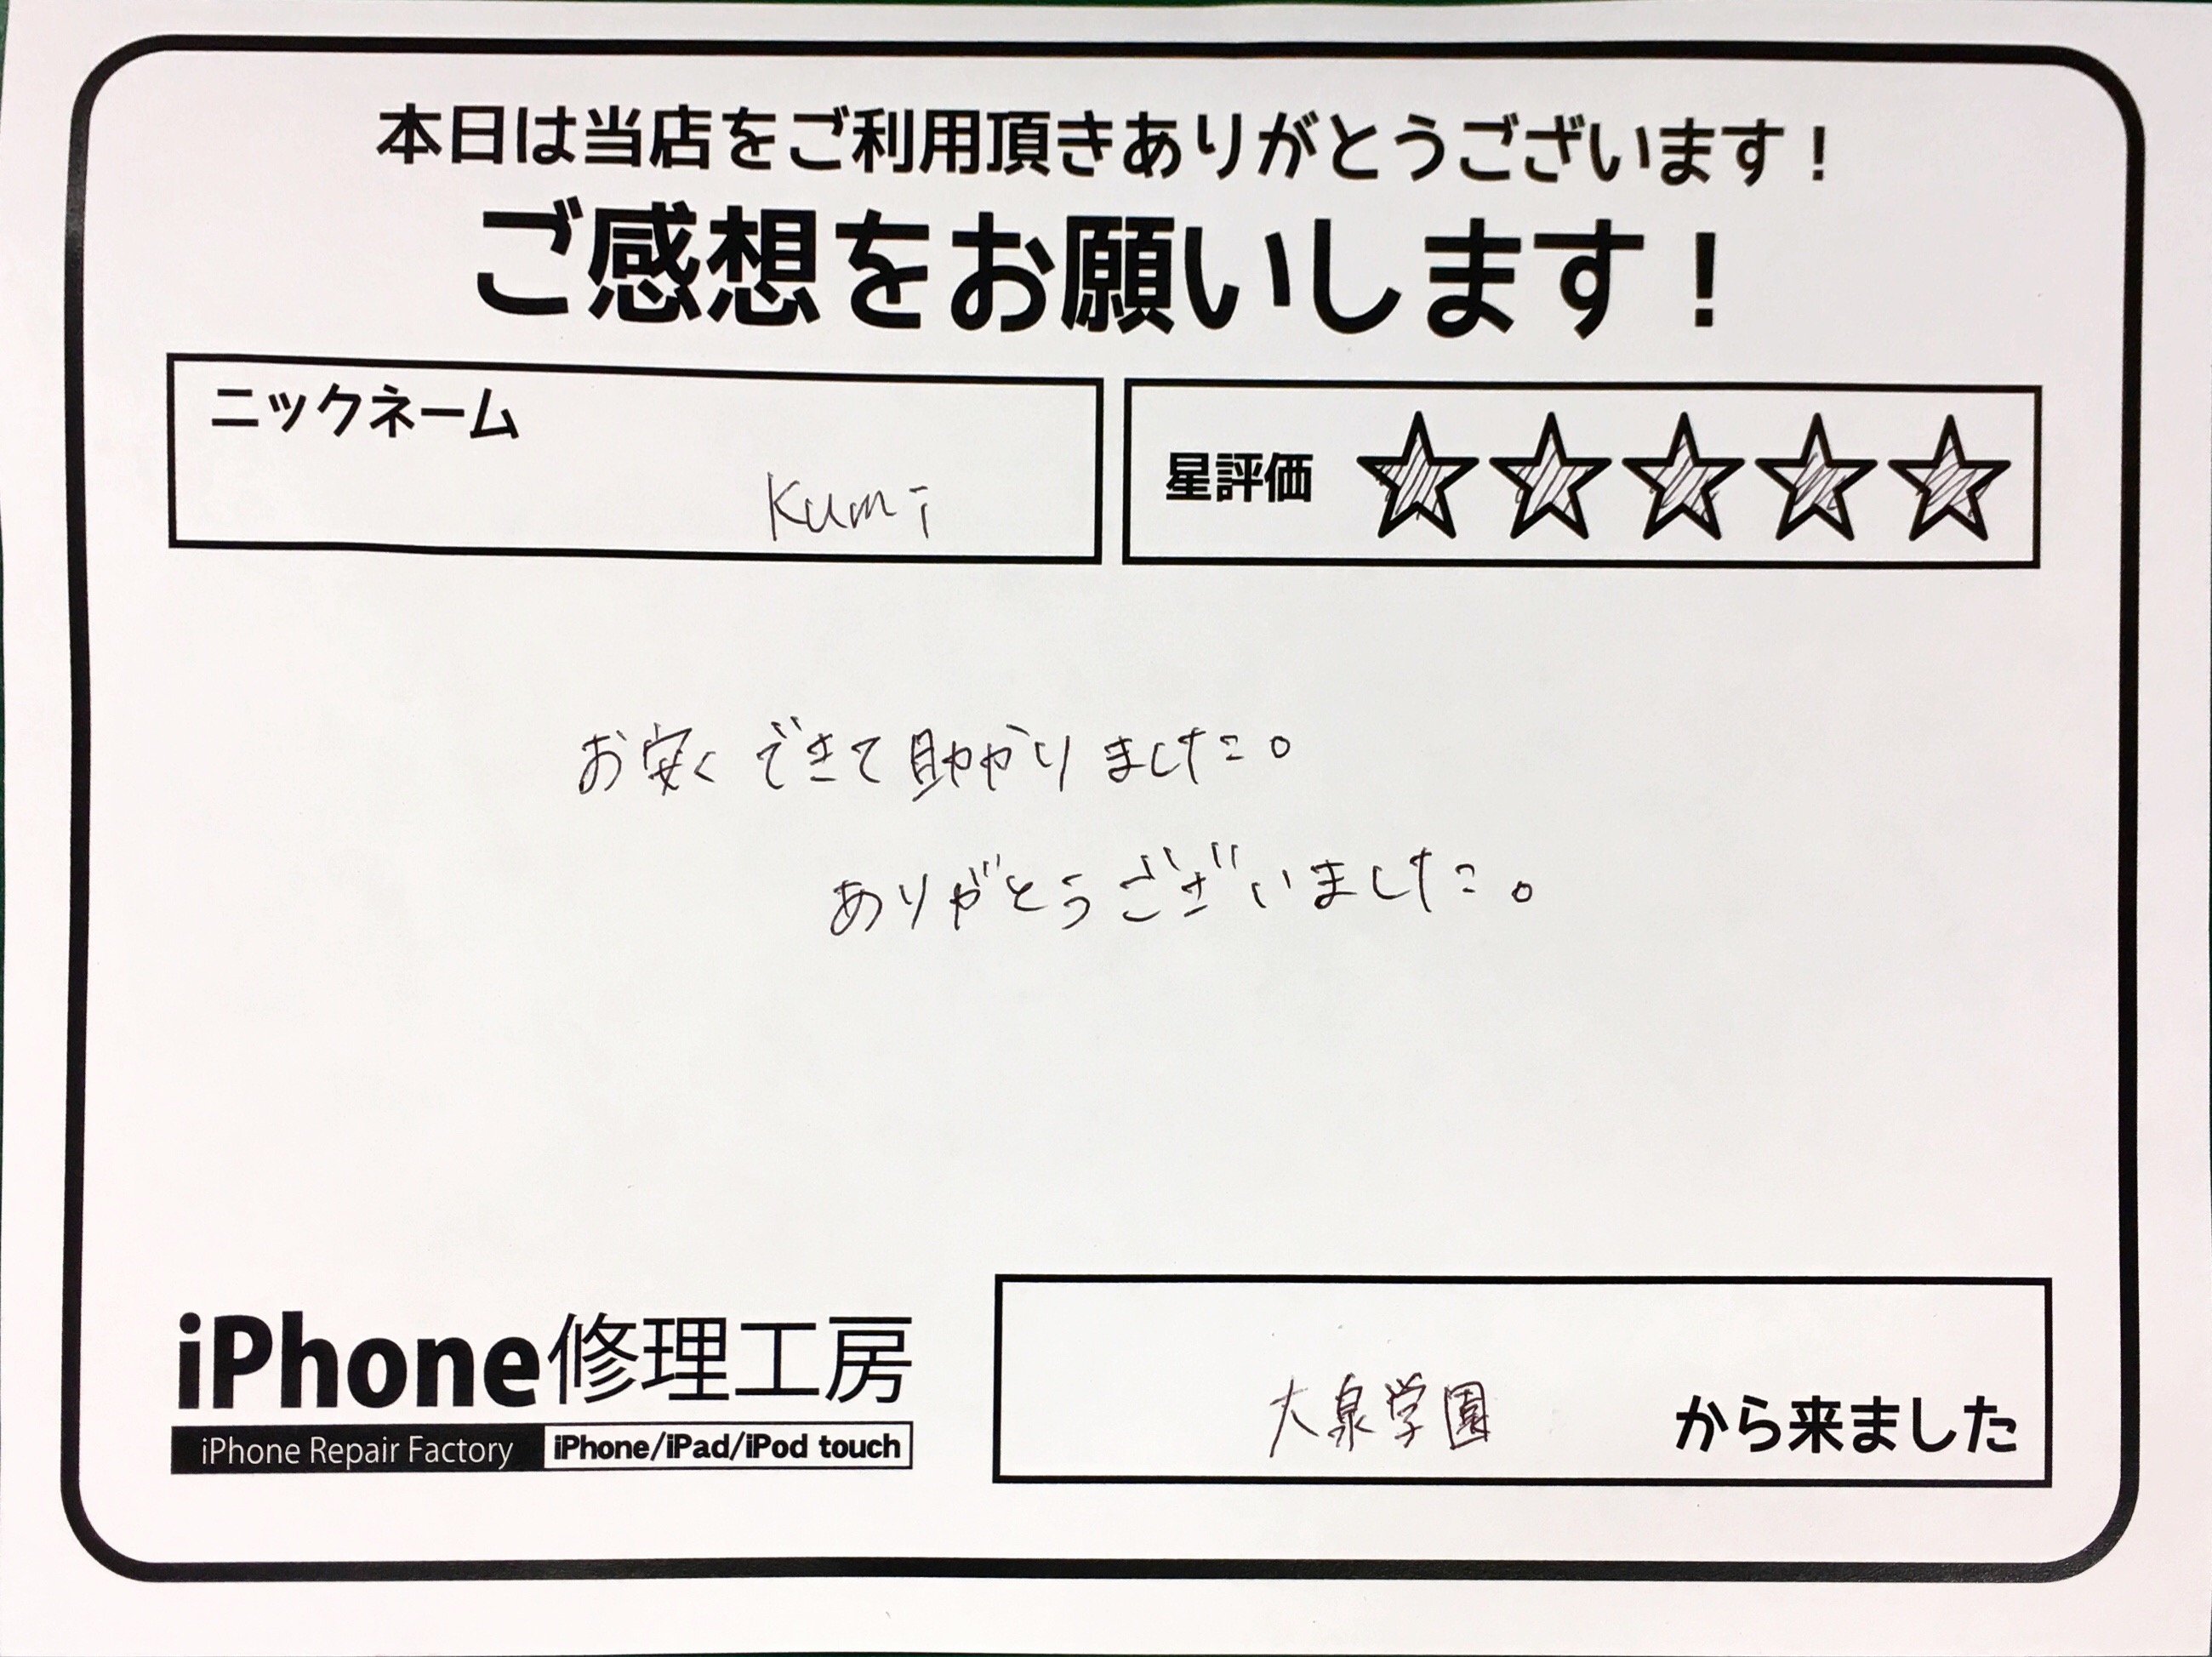 本日は当店をご利用頂きありがとうございます！
ご感想をお願いします！
ニックネーム
Kumi
星評価 ★★★★★
お安くできて助かりました。
ありがとうございました。
iPhone修理工房
iPhone Repair Factory iPhone/iPad/iPod touch
大泉学園 から来ました